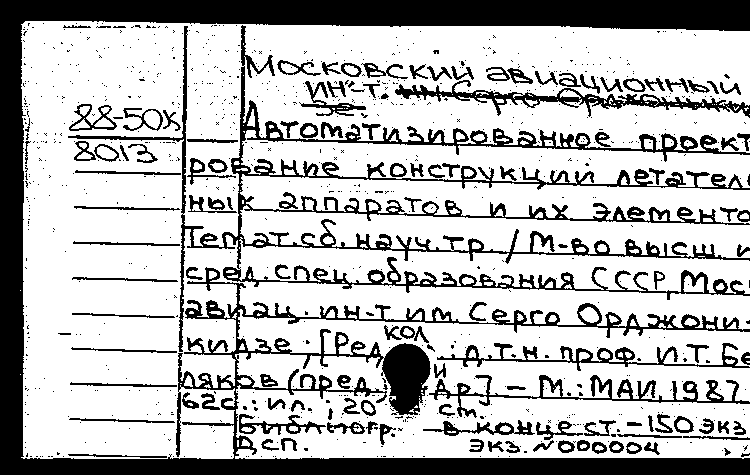 Московский авиационный
ин-т. им. Серго Орджоникид
зе.
88-50к
8013
Автоматизированное проект
рование конструкций летател
ных аппаратов и их элементо
Темат.сб. науч.тр. / М-во высш. и
сред. спец. образования СССР, Мос
авиац. ин-т им. Серго Орджони-
кидзе ; [Ред. кол.: д.т.н. проф. И.Т. Бе
ляков (пред.) и др] – М.: МАИ, 1987
62с.: ил. ; 20 ст.
Библиогр. в конце ст. – 150 экз
Дсп. экз. №000004